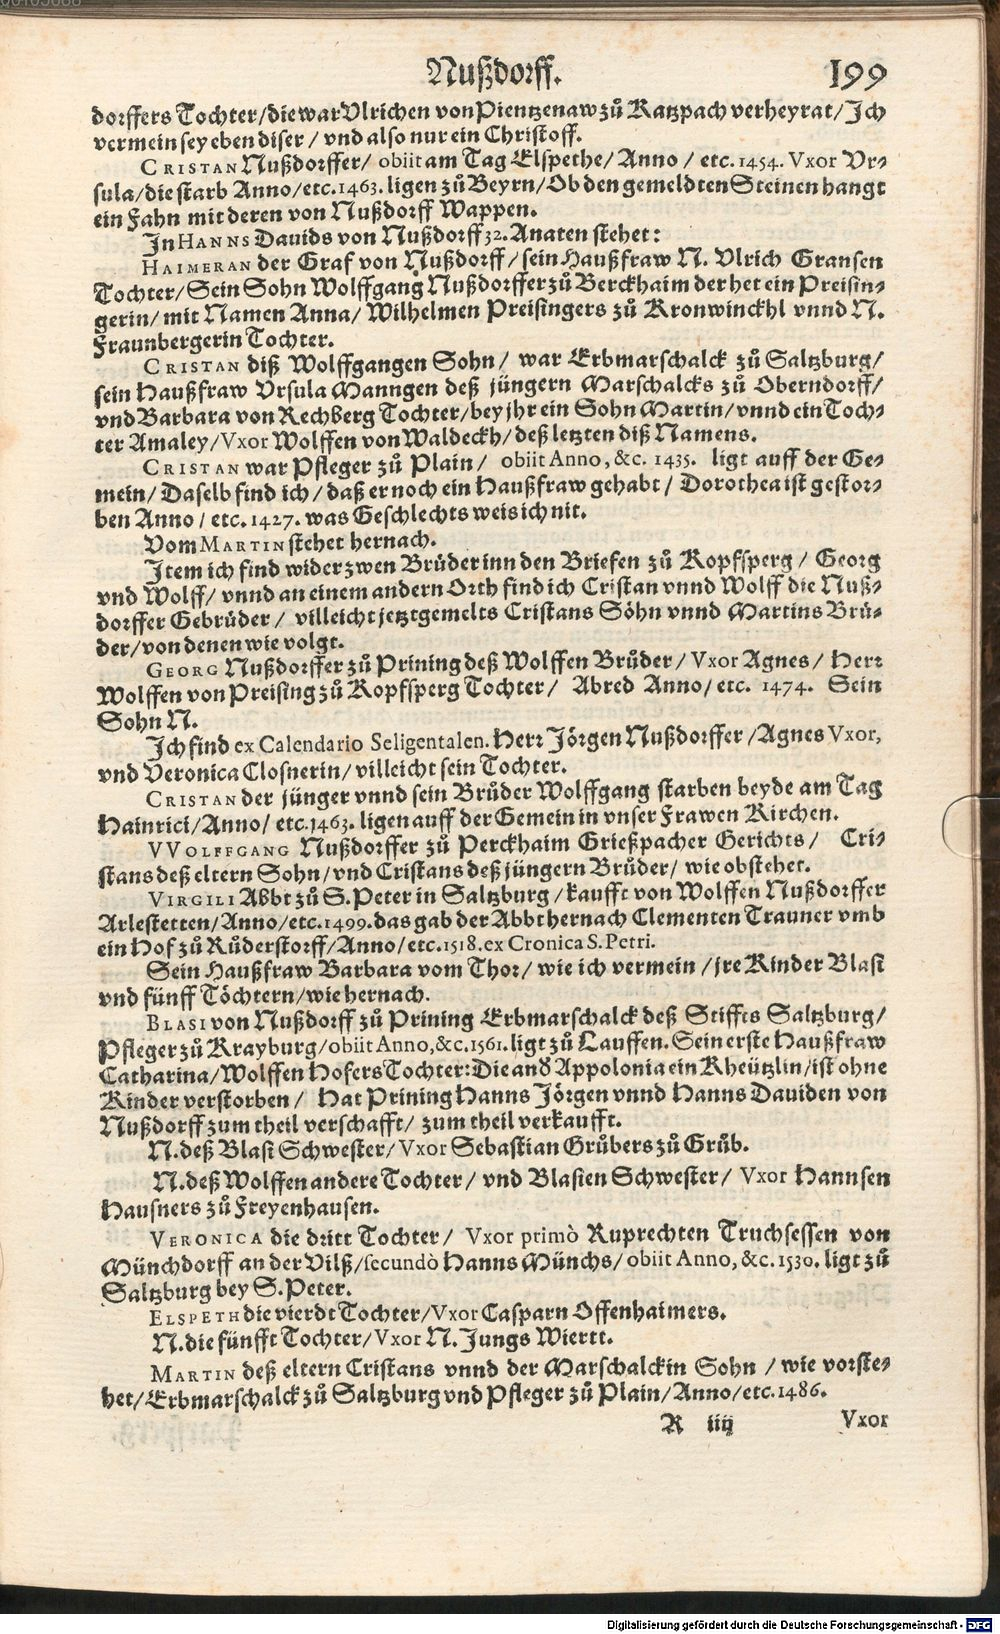 Nußdorff. 199
dorffers Tochter/die war Vlrichen von Pientzenaw zů Katzpach verheyrat/Jch
vermein sey eben diser/ vnd also nur ein Christoff.
CRISTAN Nußdorffer/ obiit am Tag Elspethe/ Anno/ etc. 1454. Vxor Vr-
sula/die starb Anno/etc. 1463. ligen zů Beyrn/Ob den gemeldten Steinen hangt
ein Fahn mit deren von Nußdorff Wappen.
Jn HANNS Dauids von Nußdorff 32. Anaten stehet:
HAIMERAN der Graf von Nußdorff/ sein Haußfraw N. Vlrich Gransen
Tochter/ Sein Sohn Wolffgang Nußdorffer zů Berckhaim der het ein Preisin-
gerin/ mit Namen Anna/ Wilhelmen Preisingers zů Kronwinckhl vnnd N.
Fraunbergerin Tochter.
CRISTAN diß Wolffgangen Sohn/ war Erbmarschalck zů Saltzburg/
sein Haußfraw Vrsula Manngen deß jüngern Marschalcks zů Oberndorff/
vnd Barbara von Rechberg Tochter/bey jhr ein Sohn Martin/vnnd ein Toch-
ter Amaley/Vxor Wolffen von Waldeckh/ deß letzten diß Namens.
CRISTAN war Pfleger zů Plain/ obiit Anno, &c. 1435. ligt auff der Ge-
mein/ Daselb find ich/ daß er noch ein Haußfraw gehabt/ Dorothea ist gestor-
ben Anno/ etc. 1427. was Geschlechts weis ich nit.
Vom MARTIN stehet hernach.
Jtem ich find wider zwen Brüder inn den Briefen zů Kopfsperg/ Georg
vnd Wolff/ vnnd an einem andern Orth find ich Cristan vnnd Wolff die Nuß-
dorffer Gebrüder/ villeicht jetztgemelts Cristans Söhn vnnd Martins Brü-
der/von denen wie volgt.
GEORG Nußdorffer zů Prining deß Wolffen Brůder/ Vxor Agnes/ Herr
Wolffen von Preising zů Kopfsperg Tochter/ Abred Anno/ etc. 1474. Sein
Sohn N.
Jch find ex Calendario Seligentalen. Herr Jörgen Nußdorffer/Agnes Vxor,
vnd Veronica Closnerin/villeicht sein Tochter.
CRISTAN der jünger vnnd sein Brůder Wolffgang starben beyde am Tag
Hainrici/Anno/ etc. 1463. ligen auff der Gemein in vnser Frawen Kirchen.
VVOLFFGANG Nußdorffer zů Perckhaim Grießpacher Gerichts/ Cri-
stans deß eltern Sohn/vnd Cristans deß jüngern Brůder/ wie obstehet.
VIRGILI Abbt zů S. Peter in Saltzburg/kaufft von Wolffen Nußdorffer
Arlestetten/Anno/etc. 1499. das gab der Abbt hernach Clementen Trauner vmb
ein Hof zů Růderstorff/Anno/etc. 1518. ex Cronica S. Petri.
Sein Haußfraw Barbara vom Thor/ wie ich vermein/jre Kinder Blasi
vnd fünff Töchtern/wie hernach.
BLASI von Nußdorff zů Prining Erbmarschalck deß Stiffts Saltzburg/
Pfleger zů Krayburg/obiit Anno, &c. 1561. ligt zů Lauffen. Sein erste Haußfraw
Catharina/Wolffen Hofers Tochter: Die and̕ Appolonia ein Kheützlin/ist ohne
Kinder verstorben/ Hat Prining Hanns Jörgen vnnd Hanns Dauiden von
Nußdorff zum theil verschafft/ zum theil verkaufft.
N. deß Blasi Schwester/Vxor Sebastian Grůbers zů Grůb.
N. deß Wolffen andere Tochter/ vnd Blasien Schwester/ Vxor Hannsen
Hausners zů Freyenhausen.
VERONICA die dritt Tochter/ Vxor primò Ruprechten Truchsessen von
Münchdorff an der Vilß/secundò Hanns Münchs/obiit Anno, &c. 1530. ligt zů
Saltzburg bey S. Peter.
ELSPETH die vierdt Tochter/Vxor Casparn Offenhaimers.
N. die fünfft Tochter/Vxor N. Jungs Wiertt.
MARTIN deß eltern Cristans vnnd der Marschalckin Sohn/ wie vorste-
het/ Erbmarschalck zů Saltzburg vnd Pfleger zů Plain/Anno/etc. 1486.
R iiij Vxor
Digitalisierung gefördert durch die Deutsche Forschungsgemeinschaft - DFG